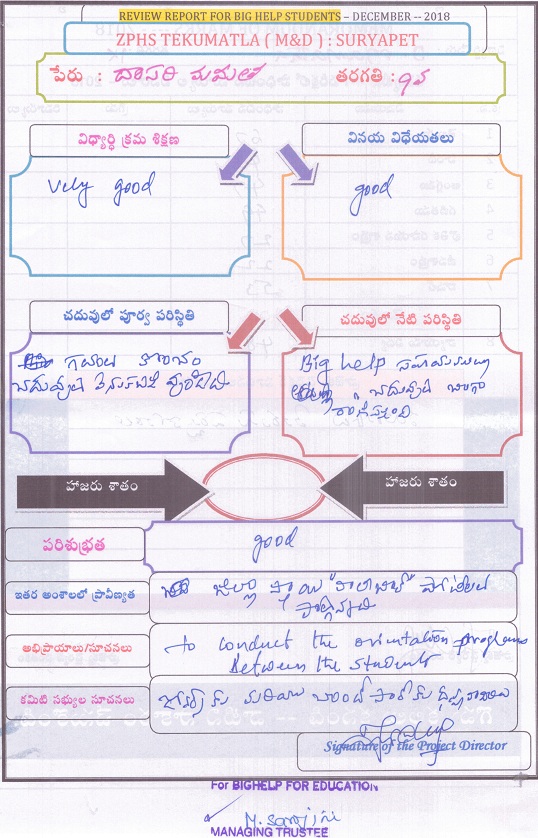 REVIEW REPORT FOR BIG HELP STUDENTS – DECEMBER -- 2018
ZPHS TEKUMATLA ( M&D ) : SURYAPET
పేరు : దాసరి సుమలత తరగతి : 9వ
విధ్యార్ధి క్రమ శిక్షణ
వినయ విధేయతలు
Very good
good
చదువులో పూర్వ పరిస్థితి
చదువులో నేటి పరిస్థితి
గతంలో కొంచెం
చదువులో వెనుకబడి వుండేది
Big help సహాయము వలన
చదువులో బాగా
రాణిస్తుంది
హాజరు శాతం
హాజరు శాతం
పరిశుభ్రత
good
ఇతర అంశాలలో ప్రావీణ్యత
జిల్లా స్థాయి
పాల్గొన్నది
అభిప్రాయాలు/సూచనలు
to conduct the orientation programs
between the students
కమిటి సభ్యుల సూచనలు
మరియు
Signature of the Project Director
For BIGHELP FOR EDUCATION
MANAGING TRUSTEE